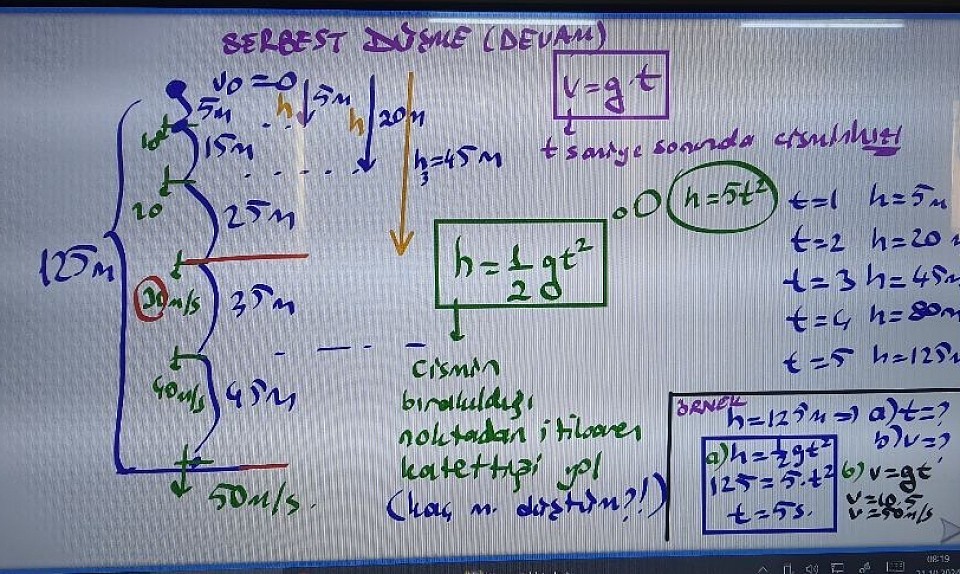 SERBEST DÜŞME (DEVAM)
V0=0
5m
5m
h
15m
h
20m
h3=45m
10
20
25m
125m
30m/s
35m
40m/s
45m
50m/s.
v=g.t
t saniye sonunda cismin hızı
h=1/2 gt²
h=5t²
cismin
bırakıldığı
noktadan itibaren
katettiği yol
(kaç m. düştüm?!)
t=1 h=5m
t=2 h=20
t=3 h=45m
t=4 h=80m
t=5 h=125m
ÖRNEK
h=125m => a) t=?
b) v=?
a) h=1/2 gt²
125=5.t²
t=5s.
b) v=gt
v=10.5
v=50m/s
08:19